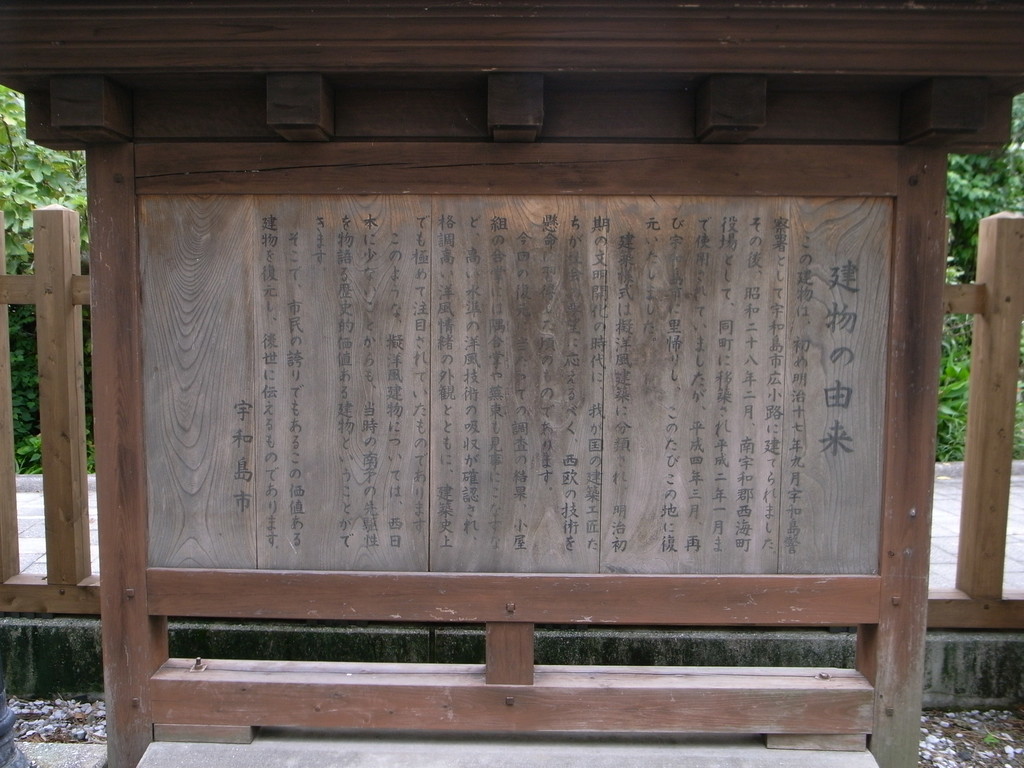 建物の由来
この建物は、初め明治十七年九月宇和島警
察署として宇和島市広小路に建てられました。
その後、昭和二十八年二月、南宇和郡西海町
役場として、同町に移築され平成二年一月ま
で使用されていましたが、平成四年三月、再
び宇和島市に里帰りし、このたびこの地に復
元いたしました。
建築様式は擬洋風建築に分類され、明治初
期の文明開化の時代に、我が国の建築工匠た
ちが に応えるべく、西欧の技術を
懸命に した頃のものであります。
今回の復元に当たっての調査の結果、小屋
組の合掌には陽合掌や蕪束も見事にこなすな
ど、高い水準の洋風技術の吸収が確認され、
格調高い洋風情緒の外観とともに、建築史上
でも極めて注目されていたものであります。
このような、擬洋風建物については、西日
本に少ないことからも、当時の南予の先駆性
を物語る歴史的価値ある建物ということがで
きます。
そこで、市民の誇りでもあるこの価値ある
建物を復元し、後世に伝えるものであります。
宇和島市